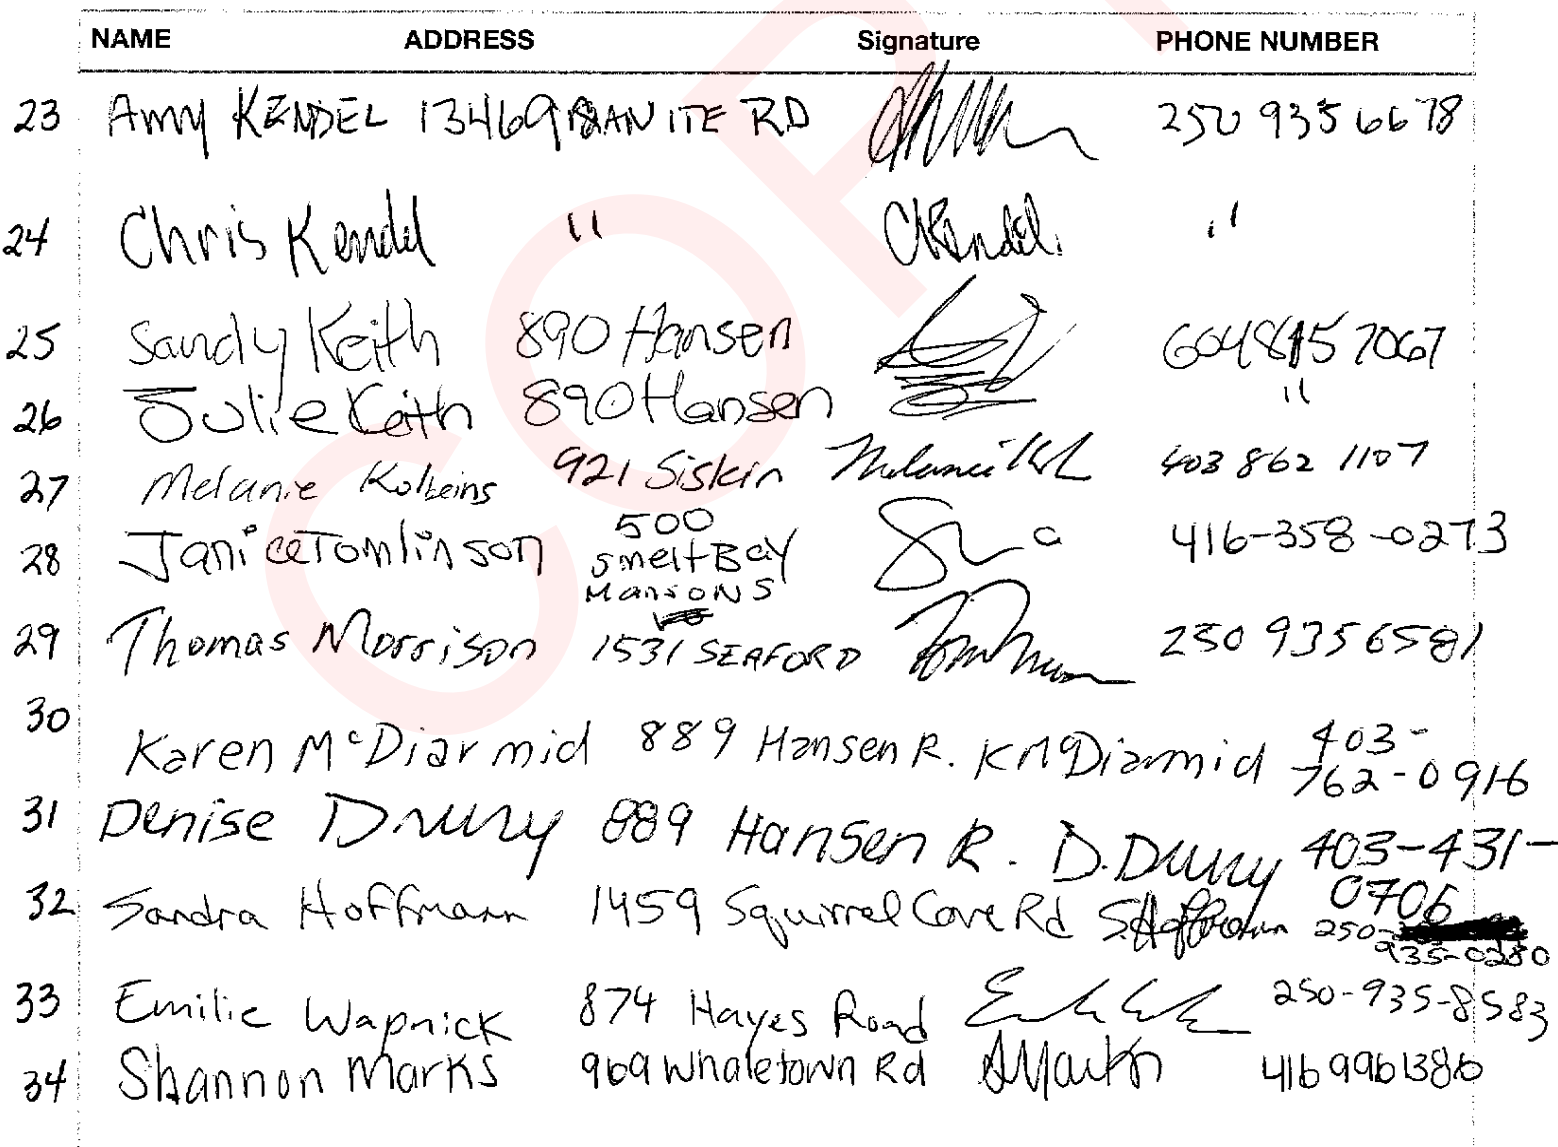 NAME ADDRESS Signature PHONE NUMBER
23 Amy KENDEL 1346 GRANITE RD 250 935 6678
24 Chris Kendel " CKendel. "
25 Sandy Keith 890 Hansen 604 815 7067
26 Julie Keith 890 Hansen "
27 Melanie Kolbeins 921 Siskin 403 862 1107
28 Janice Tomlinson 500 Smelt Bay Mansons 416-358-0273
29 Thomas Morrison 1531 SEAFORD 250 935 6581
30 Karen McDiarmid 889 Hansen R. K McDiarmid 403-762-0916
31 Denise Drury 889 Hansen R. D. Drury 403-431-0706
32 Sandra Hoffmann 1459 Squirrel Cove Rd S. Hoffmann 250-935-0280
33 Emilie Wapnick 874 Hayes Road 250-935-8583
34 Shannon Marks 969 Whaletown Rd SMarks 416 996 1386
COP